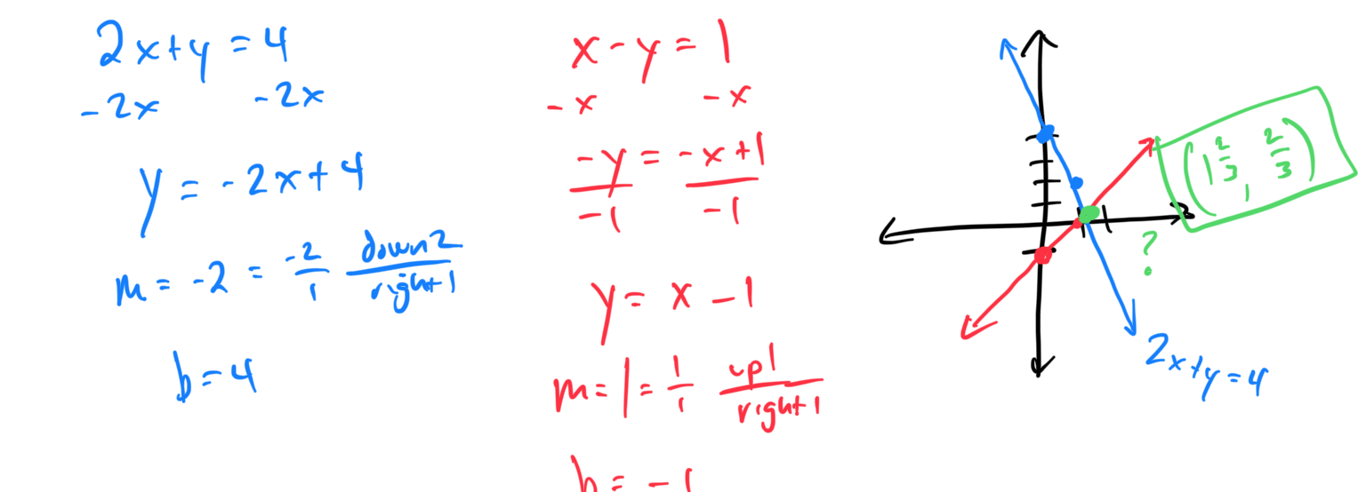 2x+y=4
-2x -2x
y = -2x+4
m = -2 = -2/1 down2/right1
b=4
x-y=1
-x -x
-y/-1 = -x+1/-1
y = x-1
m=1=1/1 up1/right1
b = -1
(1 2/3, 2/3)
?
2x+y=4